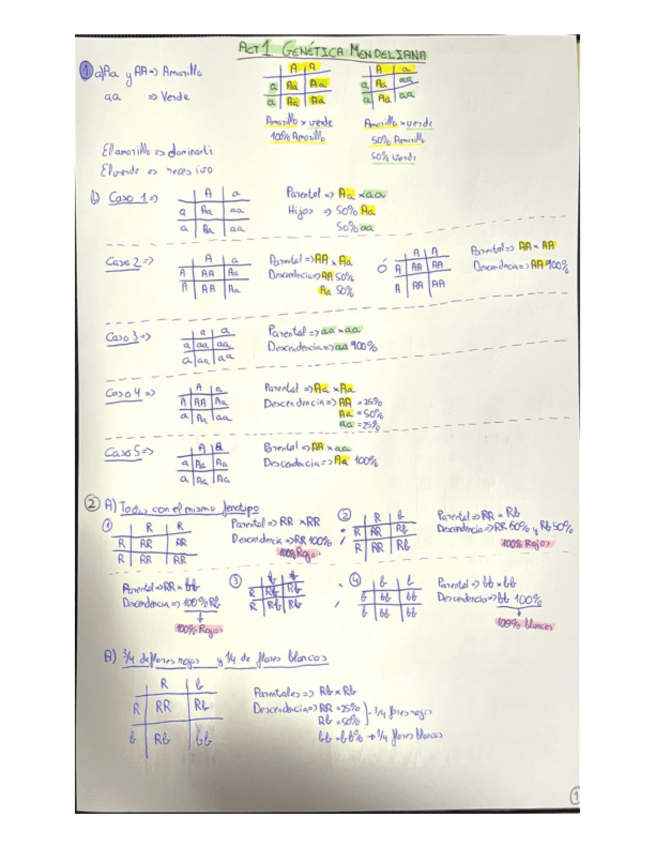 ACT 1 GENÉTICA MENDELIANA
1 a) Aa y AA => Amarillo
aa => Verde
A A
a Aa Aa
a Aa Aa
Amarillo x verde
100% Amarillo
A a
a Aa aa
a Aa aa
Amarillo x verde
50% Amarillo
50% verde
El amarillo es dominante
El verde es recesivo
b) Caso 1 =>
A a
a Aa aa
a Aa aa
Parental => Aa x aa
Hijos => 50% Aa
50% aa
Caso 2 =>
A a
A AA Aa
A AA Aa
Parental => AA x Aa
Descendencia => AA 50%
Aa 50%
Ó
A A
A AA AA
A AA AA
Parental => AA x AA
Descendencia => AA 100%
Caso 3 =>
a a
a aa aa
a aa aa
Parental => aa x aa
Descendencia => aa 100%
Caso 4 =>
A a
A AA Aa
a Aa aa
Parental => Aa x Aa
Descendencia => AA = 25%
Aa = 50%
aa = 25%
Caso 5 =>
A A
a Aa Aa
a Aa Aa
Parental => AA x aa
Descendencia => Aa 100%
2 A) Todas con el mismo fenotipo
1
R R
R RR RR
R RR RR
Parental => RR x RR
Descendencia => RR 100%
100% Rojo
;
2
R b
R RR Rb
R RR Rb
Parental => RR x Rb
Descendencia => RR 50% y Rb 50%
100% Rojos
Parental => RR x bb
Descendencia => 100% Rb
100% Rojos
3
b b
R Rb Rb
R Rb Rb
;
4
b b
b bb bb
b bb bb
Parental => bb x bb
Descendencia => bb 100%
100% blancos
B) 3/4 de flores rojas y 1/4 de flores blancas
R b
R RR Rb
b Rb bb
Parentales => Rb x Rb
Descendencia => RR = 25%
Rb = 50%
3/4 flores rojas
1/4 flores blancas
1